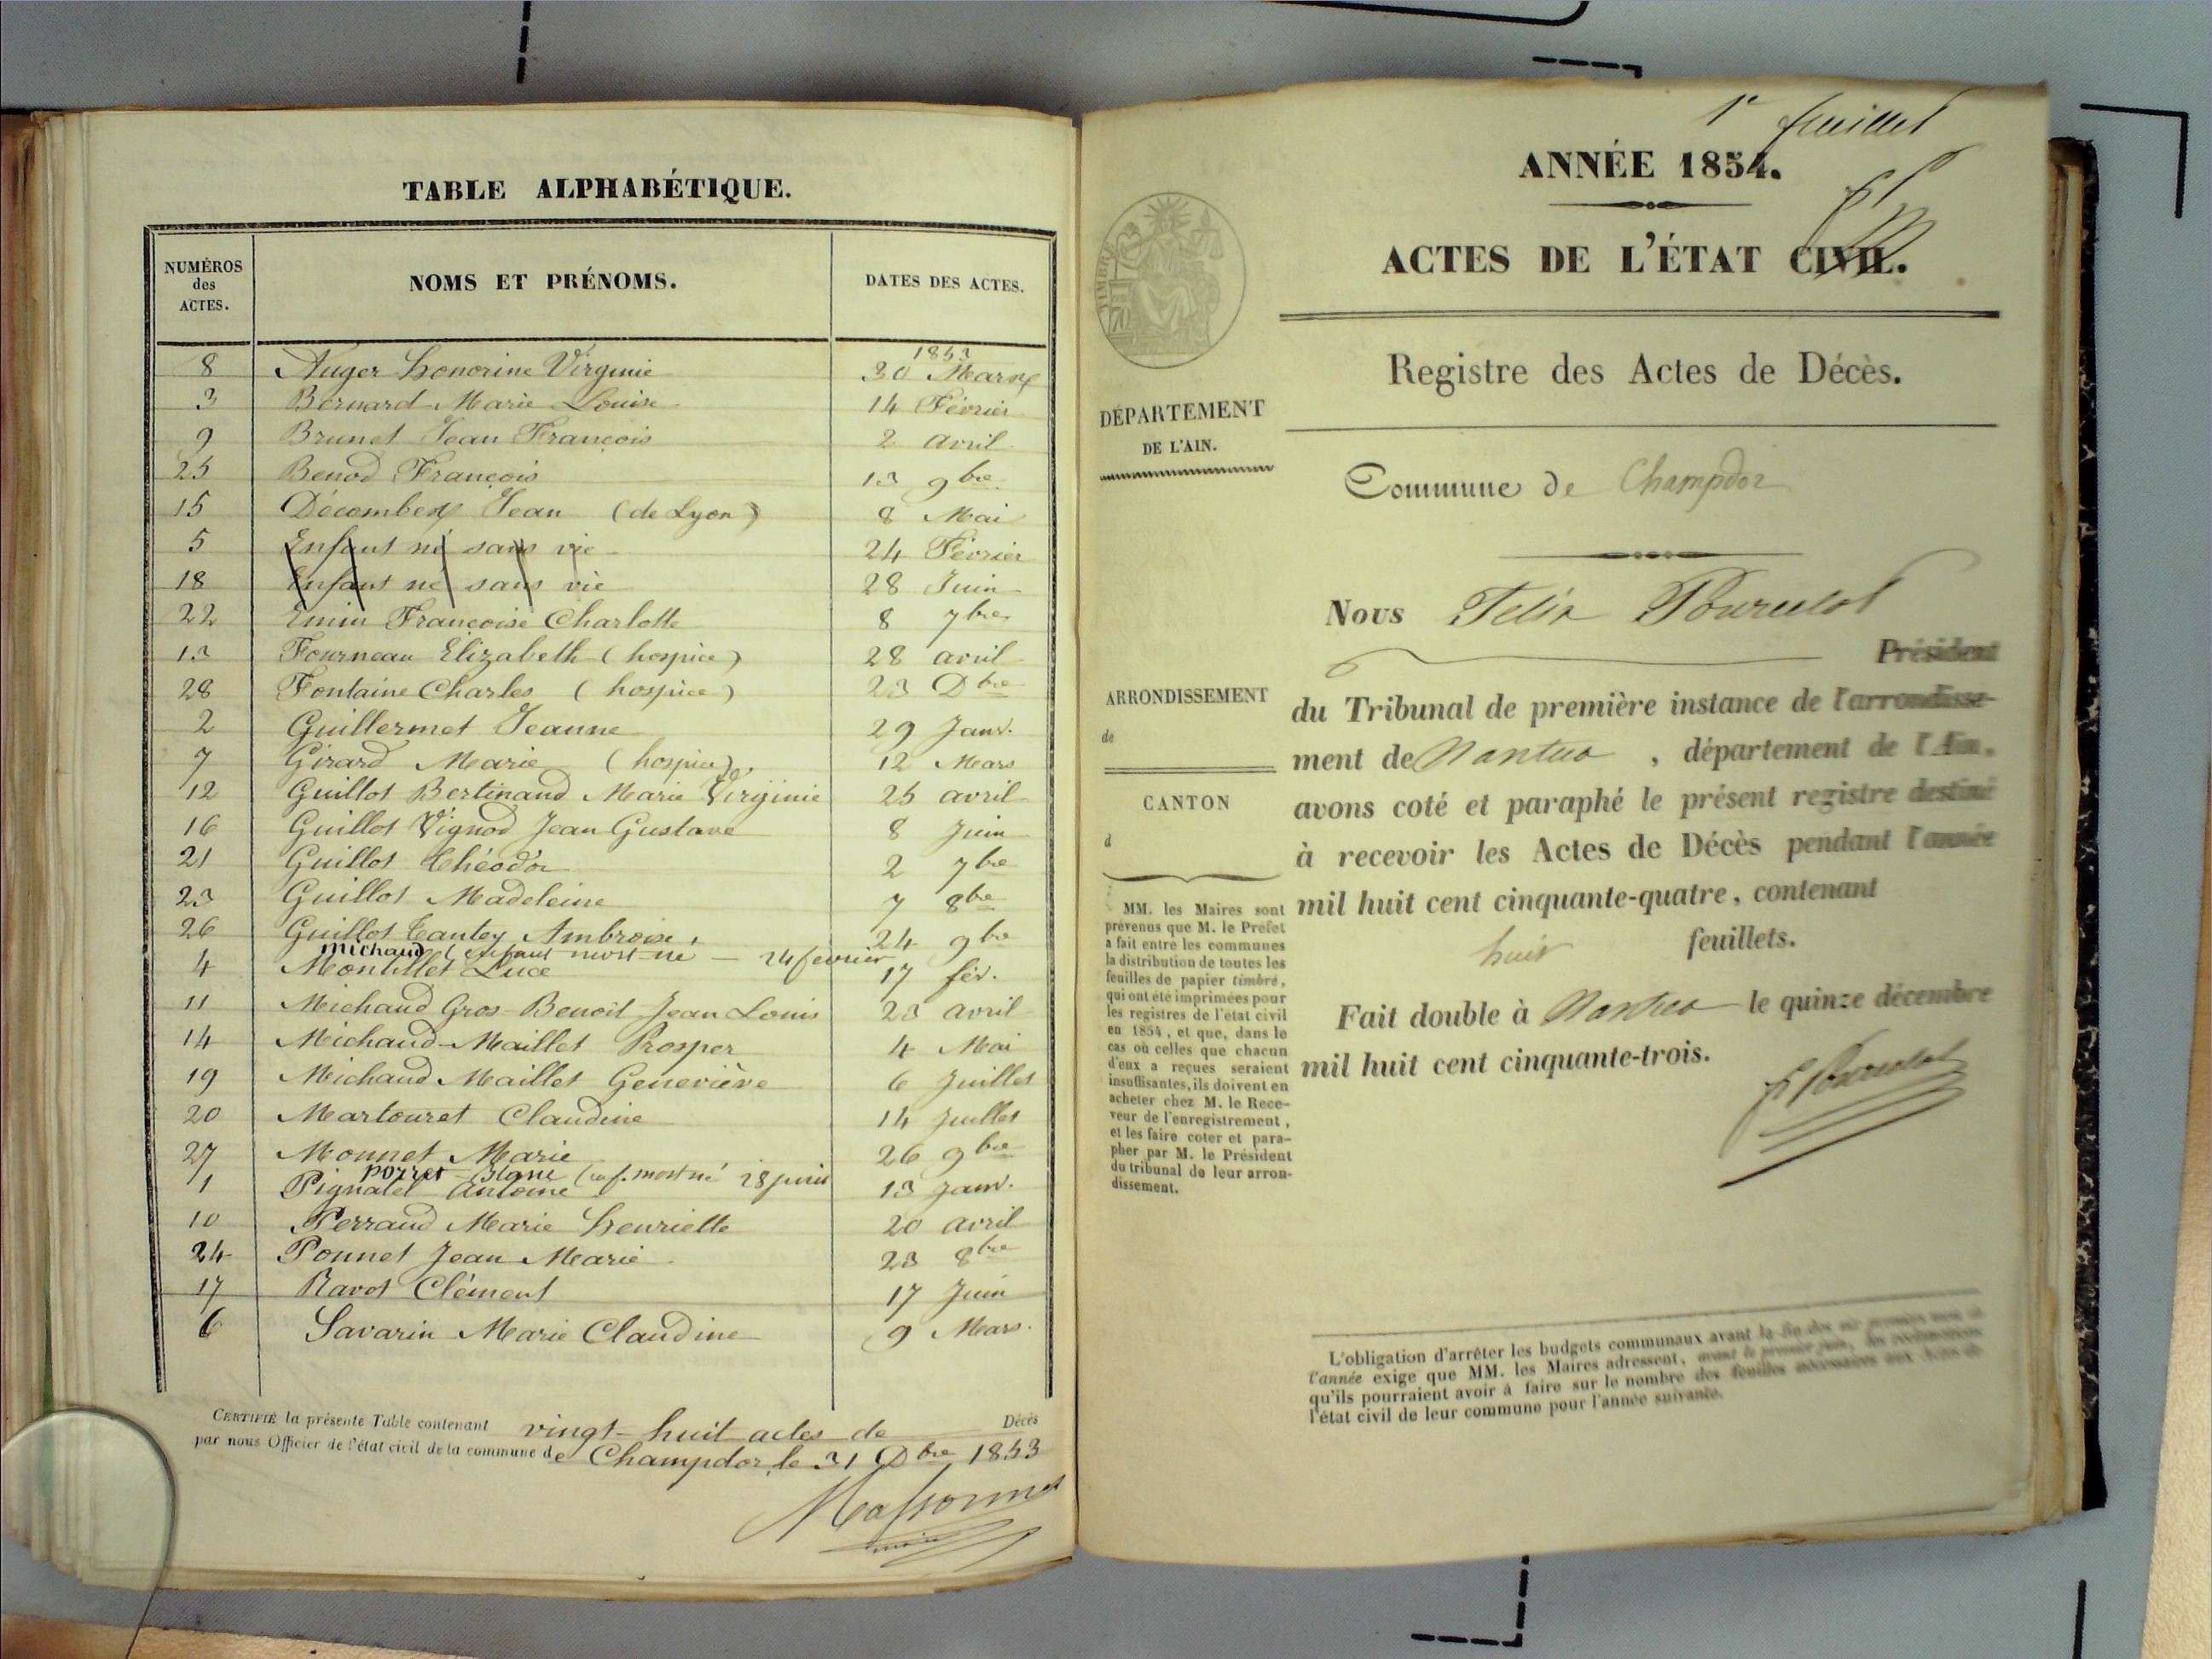 TABLE ALPHABÉTIQUE.
NUMÉROS des ACTES. NOMS ET PRÉNOMS. DATES DES ACTES.
1853
8 Auger honorine Virginie 30 Mars
3 Bernard Marie Louise 14 Février
9 Brunet Jean François 2 avril
25 Benod François 13 9bre
15 Décombes Jean (de Lyon) 8 Mai
5 Enfant né sans vie 24 Février
18 Enfant né sans vie 28 Juin
22 Emin Françoise Charlotte 8 7bre
13 Fourneau Elizabeth (hospice) 28 avril
28 Fontaine Charles (hospice) 23 Dbre
2 Guillermet Jeanne 29 Janv.
7 Girard Marie (hospice). 12 Mars
12 Guillot Bertinand Marie Virginie 25 avril
16 Guillot Vignod Jean Gustave 8 Juin
21 Guillot Théodor 2 7bre
23 Guillot Madeleine 7 8bre
26 Guillot Tantey Ambroise. 24 9bre
Michaud (enfant mort-né — 24 février
4 Montillet Luce 17 fév.
11 Michaud Gros-Benoit Jean Louis 23 avril
14 Michaud-Maillet Prosper 4 Mai
19 Michaud Maillet Geneviève 6 Juillet
20 Martouret Claudine 14 Juillet
27 Monnet Marie 26 9bre
porret-Blanc (enf. mort né 28 juin
1 Pignatel Antoine 13 Janv.
10 Perraud Marie henriette 20 avril
24 Ponnet Jean Marie 23 8bre
17 Ravot Clément 17 Juin
6 Savarin Marie Claudine 9 Mars.
CERTIFIÉ la présente Table contenant vingt-huit actes de Décès
par nous Officier de l'état civil de la commune de Champdor, le 31 Dbre 1853
Massonnet
1er feuillet
ANNÉE 1854.
ACTES DE L'ÉTAT CIVIL.
TIMBRE
Registre des Actes de Décès.
DÉPARTEMENT
DE L'AIN.
Commune de Champdor
Nous Félix Pourcelot
Président
ARRONDISSEMENT
de
du Tribunal de première instance de l'arrondisse-
ment de Nantua, département de l'Ain,
CANTON
d
avons coté et paraphé le présent registre destiné
à recevoir les Actes de Décès pendant l'année
mil huit cent cinquante-quatre, contenant
huit feuillets.
Fait double à Nantua le quinze décembre
mil huit cent cinquante-trois.
F Pourcelot
MM. les Maires sont
prévenus que M. le Préfet
a fait entre les communes
la distribution de toutes les
feuilles de papier timbré,
qui ont été imprimées pour
les registres de l'état civil
en 1854, et que, dans le
cas où celles que chacun
d'eux a reçues seraient
insuffisantes, ils doivent en
acheter chez M. le Rece-
veur de l'enregistrement,
et les faire coter et para-
pher par M. le Président
du tribunal de leur arron-
dissement.
L'obligation d'arrêter les budgets communaux avant la fin des six premiers mois de
l'année exige que MM. les Maires adressent, avant le premier juin, les réclamations
qu'ils pourraient avoir à faire sur le nombre des feuilles nécessaires aux Actes de
l'état civil de leur commune pour l'année suivante.